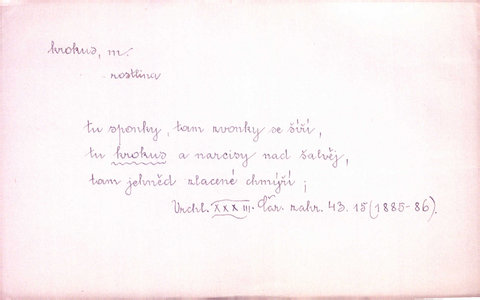 krokus, m.
rostlina
tu sponky, tam zvonky se šíří,
tu krokus a narcisy nad šalvěj,
tam jehněd zlacené chmýří;
Vrchl. XXXIII. Čar. zahr. 43. 15 (1885-86).